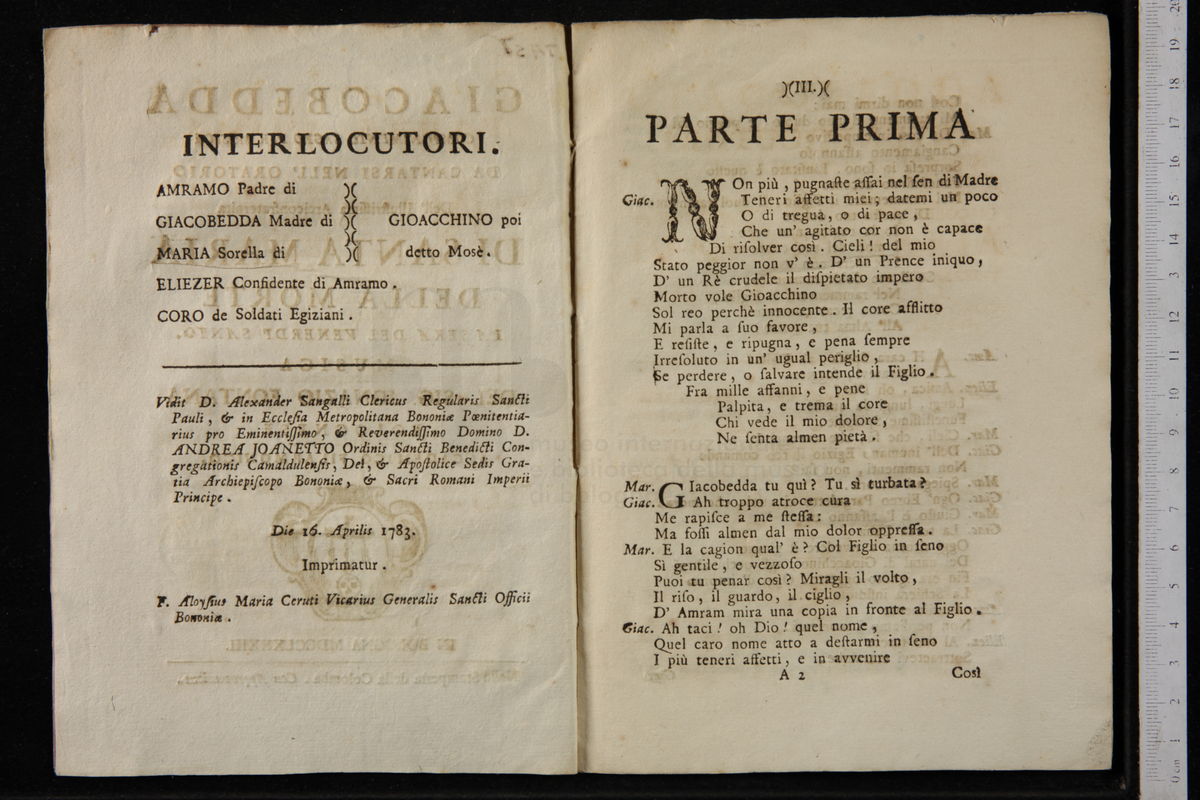 INTERLOCUTORI.
AMRAMO Padre di )(
GIACOBEDDA Madre di )( GIOACCHINO poi
MARIA Sorella di )( detto Mosè.
ELIEZER Confidente di Amramo.
CORO de Soldati Egiziani.
Vidit D. Alexander Sangalli Clericus Regularis Sancti
Pauli, & in Ecclesia Metropolitana Bononiæ Pœnitentia-
rius pro Eminentissimo, & Reverendissimo Domino D.
ANDREA JOANETTO Ordinis Sancti Benedicti Con-
gregationis Camaldulensis, Dei, & Apostolice Sedis Gra-
tia Archiepiscopo Bononiæ, & Sacri Romani Imperii
Principe.
Die 16. Aprilis 1783.
Imprimatur.
F. Aloysius Maria Ceruti Vicarius Generalis Sancti Officii
Bononiæ.
)(III.)(
PARTE PRIMA
Giac. NOn più, pugnaſte aſſai nel ſen di Madre
Teneri affetti miei; datemi un poco
O di tregua, o di pace,
Che un' agitato cor non è capace
Di riſolver così. Cieli! del mio
Stato peggior non v' è. D' un Prence iniquo,
D' un Rè crudele il diſpietato impero
Morto vole Gioacchino
Sol reo perchè innocente. Il core afflitto
Mi parla a ſuo favore,
E reſiſte, e ripugna, e pena ſempre
Irreſoluto in un' ugual periglio,
Se perdere, o ſalvare intende il Figlio.
Fra mille affanni, e pene
Palpita, e trema il core
Chi vede il mio dolore,
Ne ſenta almen pietà.
Mar. GIacobedda tu quì? Tu sì turbata?
Giac. Ah troppo atroce cura
Me rapiſce a me ſteſſa:
Ma foſſi almen dal mio dolor oppreſſa.
Mar. E la cagion qual' è? Col Figlio in ſeno
Sì gentile, e vezzoſo
Puoi tu penar così? Miragli il volto,
Il riſo, il guardo, il ciglio,
D' Amram mira una copia in fronte al Figlio.
Giac. Ah taci! oh Dio! quel nome,
Quel caro nome atto a deſtarmi in ſeno
I più teneri affetti, e in avvenire
A 2 Così